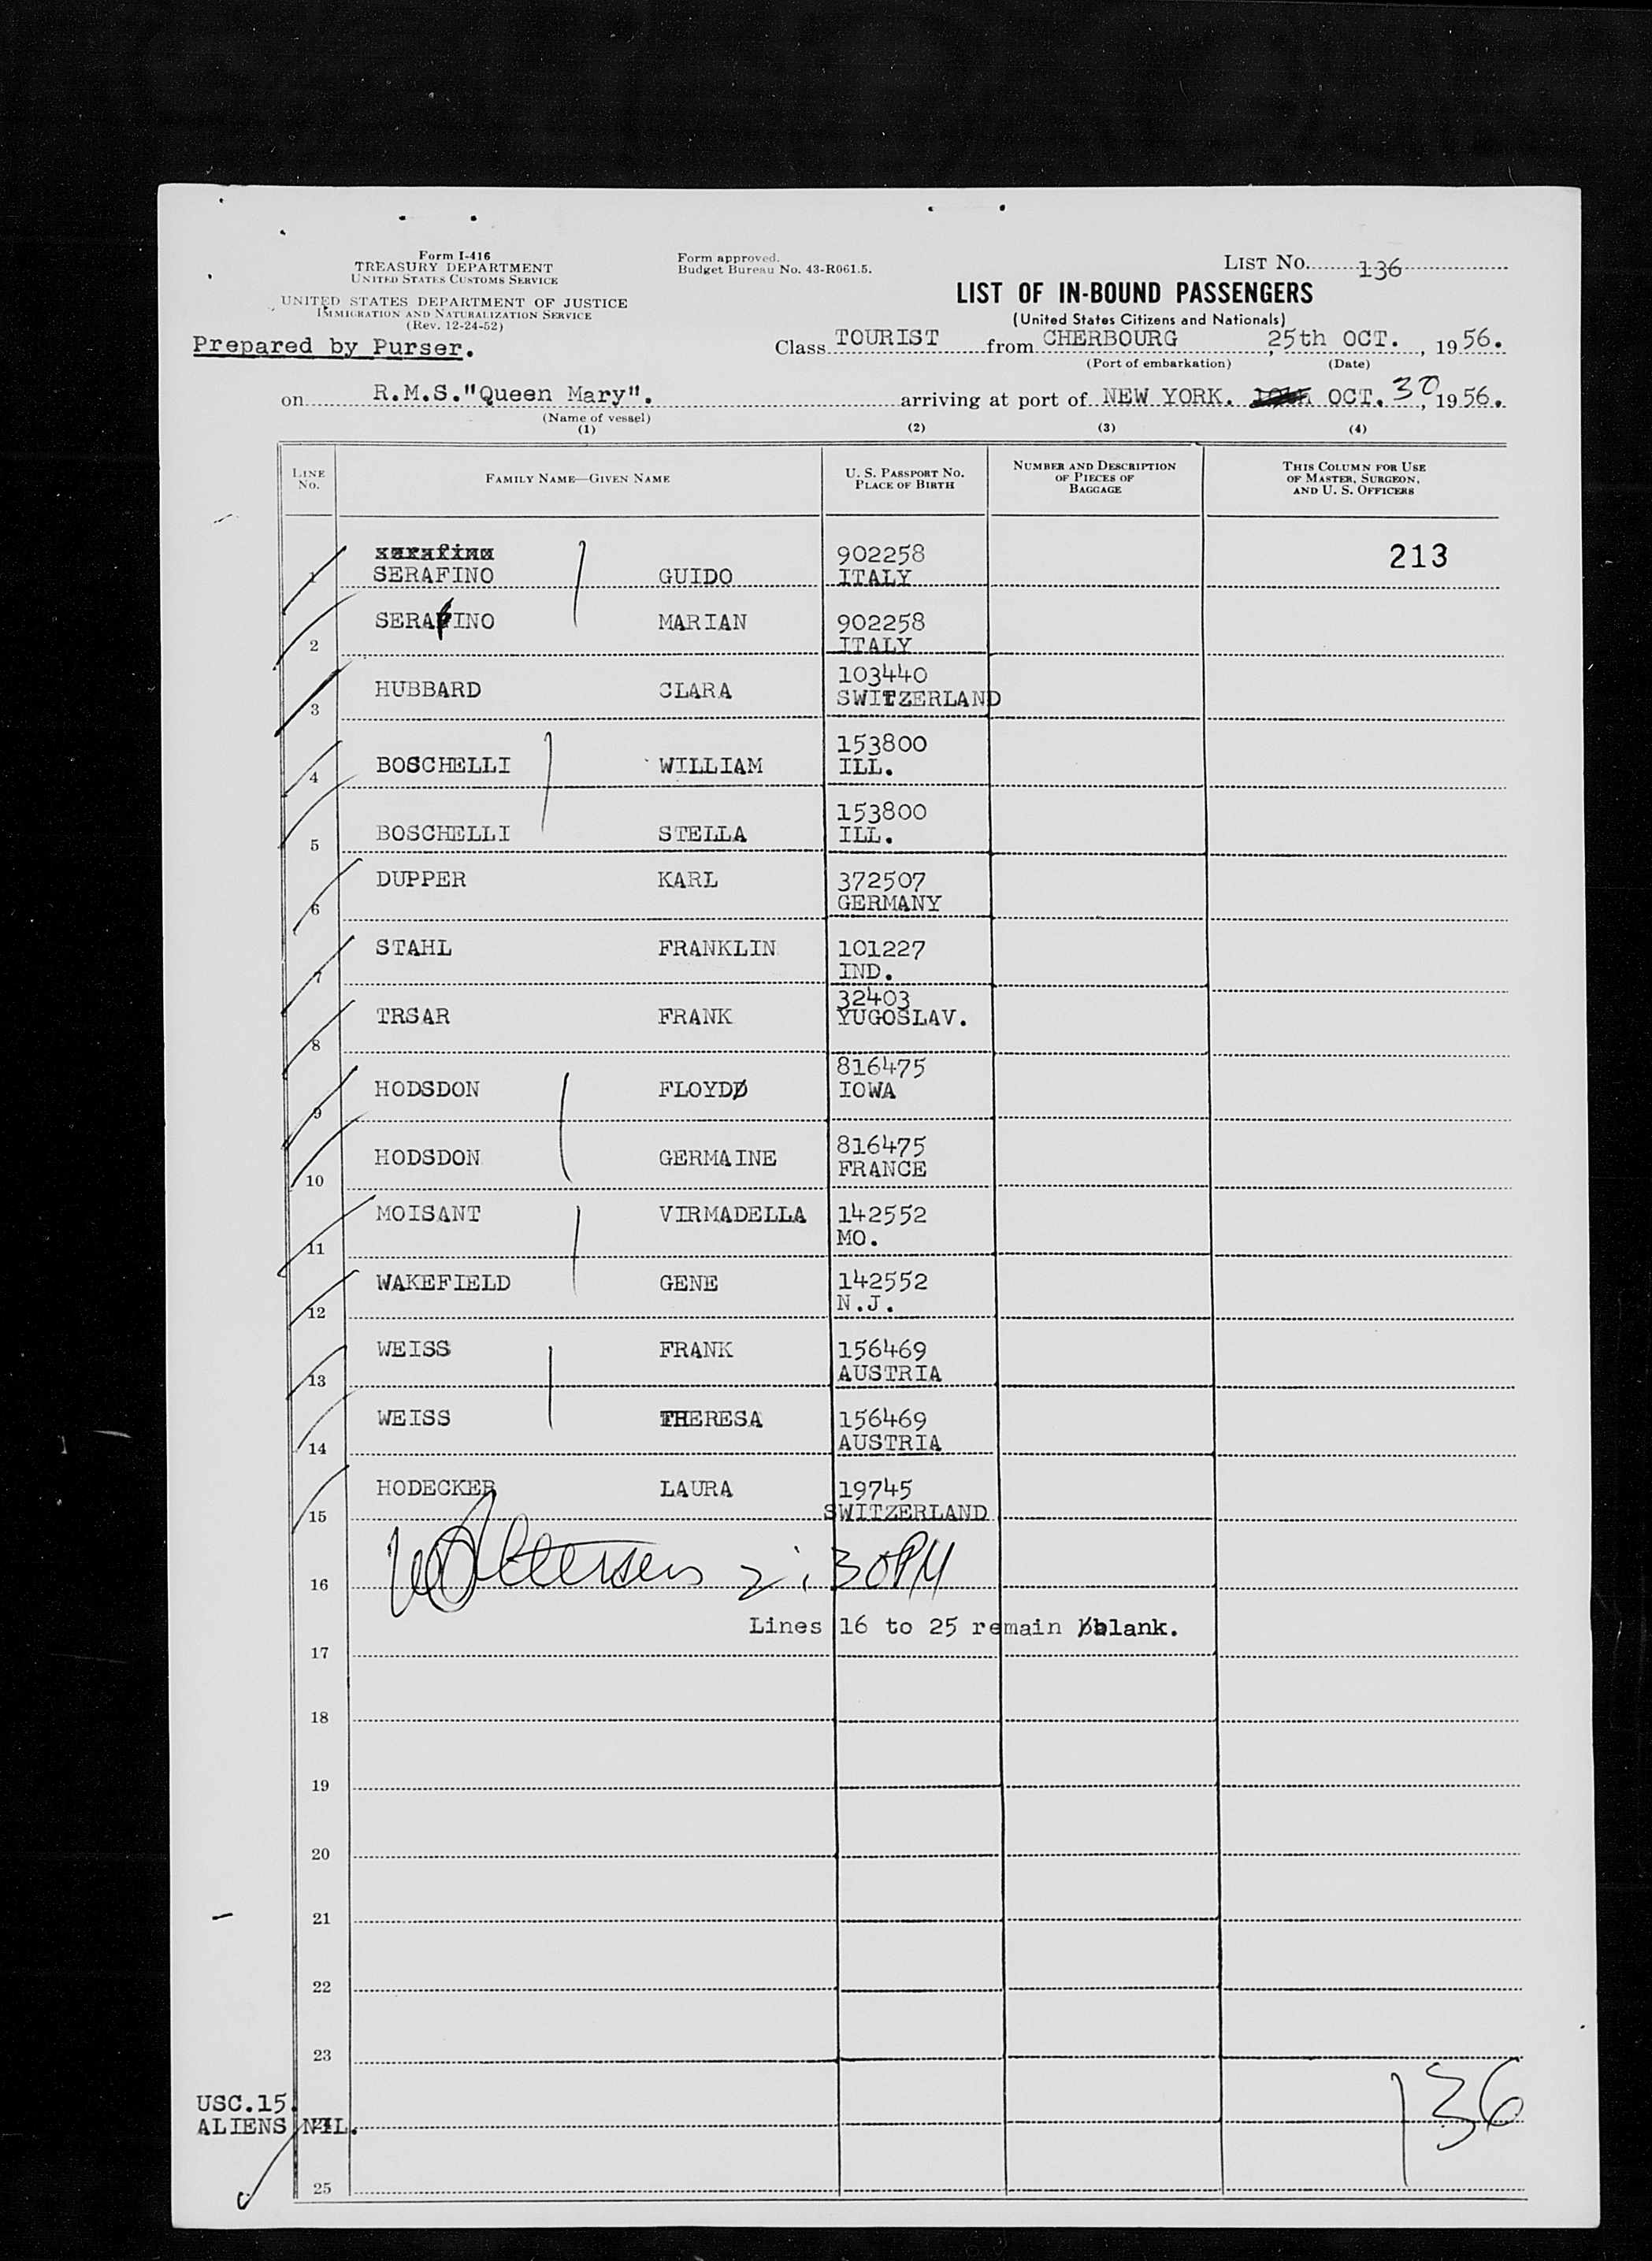 Form I-416
TREASURY DEPARTMENT
UNITED STATES CUSTOMS SERVICE
UNITED STATES DEPARTMENT OF JUSTICE
IMMIGRATION AND NATURALIZATION SERVICE
(Rev. 12-24-52)
Prepared by Purser.
Form approved.
Budget Bureau No. 43-R061.5.
LIST NO. 136
LIST OF IN-BOUND PASSENGERS
(United States Citizens and Nationals)
Class TOURIST from CHERBOURG, 25th OCT., 1956.
(Port of embarkation) (Date)
on R.M.S."Queen Mary". arriving at port of NEW YORK. OCT. 30, 1956.
(Name of vessel)
(1) (2) (3) (4)
LINE NO. FAMILY NAME—GIVEN NAME U. S. PASSPORT NO. PLACE OF BIRTH NUMBER AND DESCRIPTION OF PIECES OF BAGGAGE THIS COLUMN FOR USE OF MASTER, SURGEON, AND U. S. OFFICERS
serafino 902258 213
1 SERAFINO GUIDO ITALY
SERAFINO MARIAN 902258
2 ITALY
103440
3 HUBBARD CLARA SWITZERLAND
153800
4 BOSCHELLI WILLIAM ILL.
153800
5 BOSCHELLI STELLA ILL.
DUPPER KARL 372507
6 GERMANY
STAHL FRANKLIN 101227
7 IND.
32403
8 TRSAR FRANK YUGOSLAV.
816475
9 HODSDON FLOYDD IOWA
816475
10 HODSDON GERMAINE FRANCE
MOISANT VIRMADELLA 142552
11 MO.
WAKEFIELD GENE 142552
12 N.J.
WEISS FRANK 156469
13 AUSTRIA
WEISS THERESA 156469
14 AUSTRIA
HODECKER LAURA 19745
15 SWITZERLAND
16 2:30PM
Lines 16 to 25 remain blank.
17
18
19
20
21
22
23
USC.15.
ALIENS NIL. 24
136
25